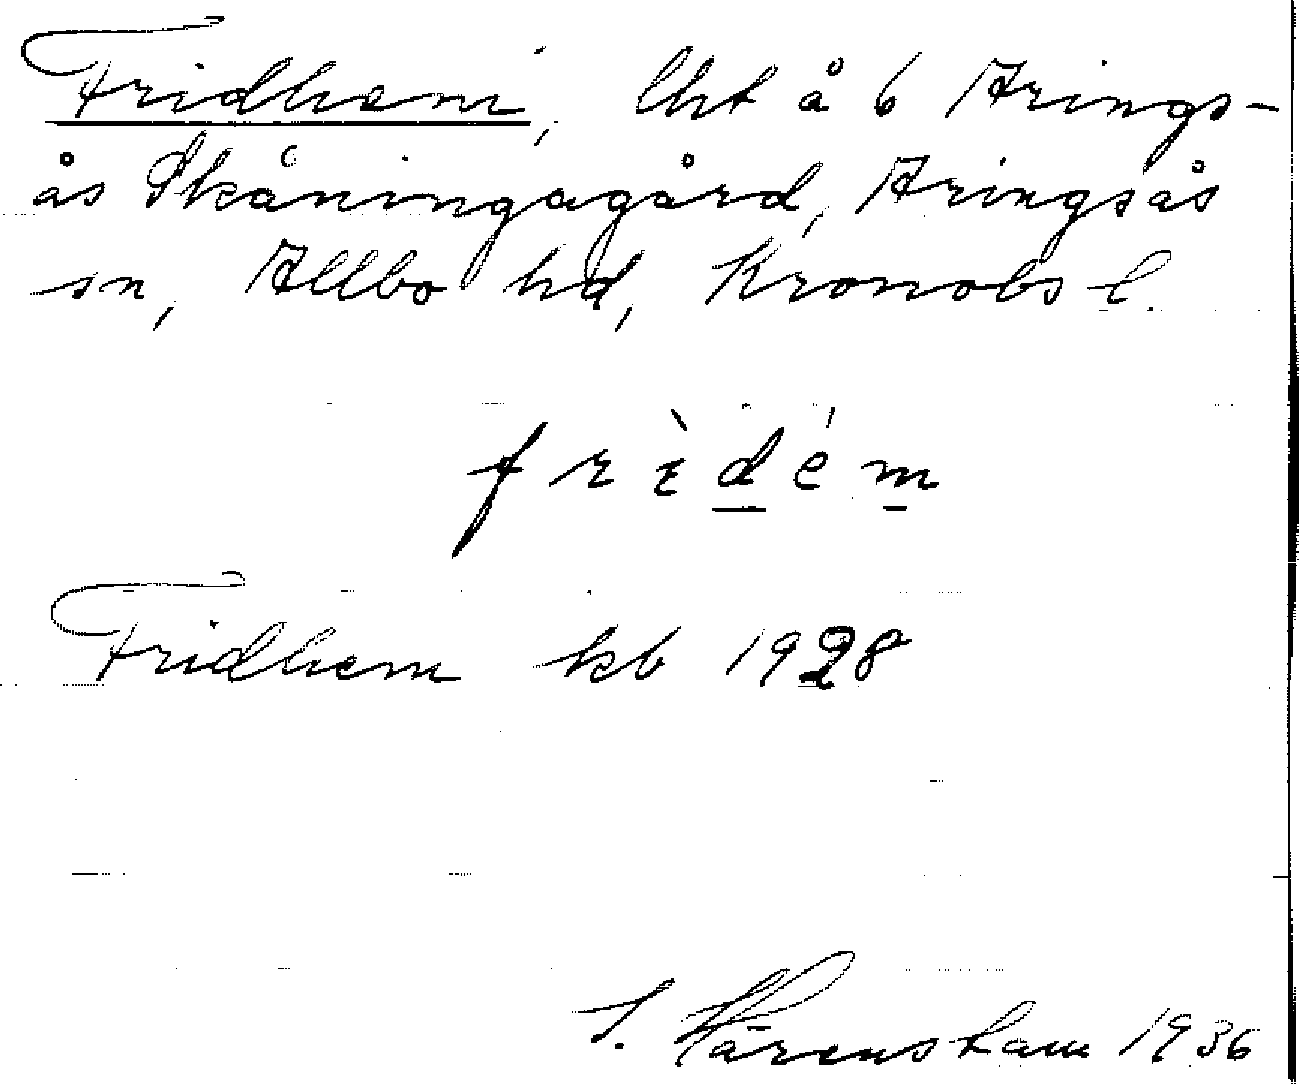 Fridhem, lht å 6 Arings-
ås Skåningagård, Aringsås
sn, Allbo hd, Kronobs l.
frìdém
Fridhem kb 1928
S. 1936